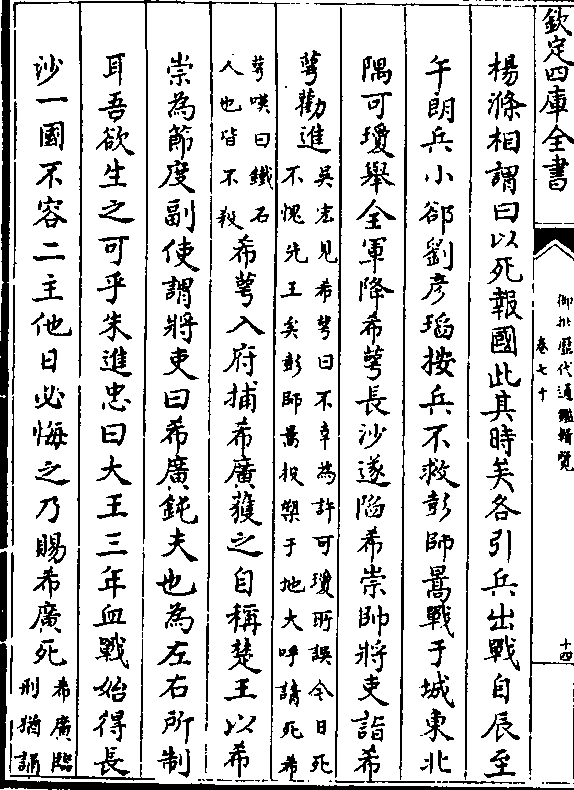 欽定四庫全書
御批歷代通鑑輯覽
卷七十
十四
楊滌相謂曰以死報國此其時矣各引兵出戰自辰至
午朗兵小郤劉彥瑫按兵不救彭師暠戰于城東北
隅可瓊舉全軍降希萼長沙遂陷希崇帥將吏詣希
萼勸進吳宏見希萼曰不幸為許可瓊所誤今日死
不愧先王矣彭師暠投槊于地大呼請死希
萼嘆曰鐵石
人也皆不殺希萼入府捕希廣獲之自稱楚王以希
崇為節度副使謂將吏曰希廣鈍夫也為左右所制
耳吾欲生之可乎朱進忠曰大王三年血戰始得長
沙一國不容二主他日必悔之乃賜希廣死希廣臨
刑猶誦